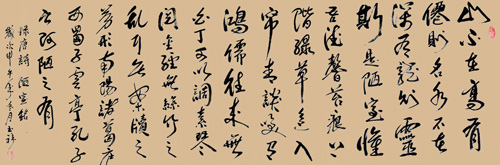 山不在高有
僊則名水不在
深有龍則靈
斯是陋室惟
吾德馨苔痕上
階綠草色入
帘青談笑有
鴻儒往來無
白丁可以調素琴
閱金經無絲竹之
亂耳無案牘之
勞形南陽諸葛廬
西蜀子雲亭孔子
云何陋之有
陋室銘
歲次甲午年